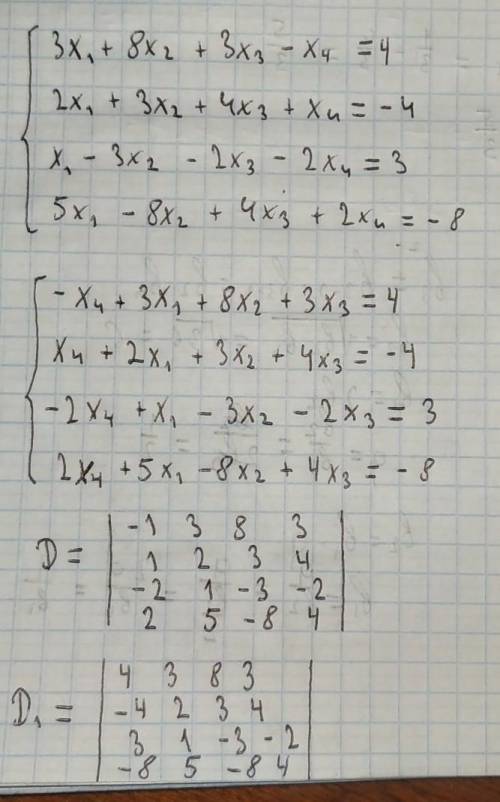 3x₁ + 8x₂ + 3x₃ - x₄ = 4
2x₁ + 3x₂ + 4x₃ + x₄ = -4
x₁ - 3x₂ - 2x₃ - 2x₄ = 3
5x₁ - 8x₂ + 4x₃ + 2x₄ = -8
-x₄ + 3x₁ + 8x₂ + 3x₃ = 4
x₄ + 2x₁ + 3x₂ + 4x₃ = -4
-2x₄ + x₁ - 3x₂ - 2x₃ = 3
2x₄ + 5x₁ - 8x₂ + 4x₃ = -8
-1 3 8 3
D = 1 2 3 4
-2 1 -3 -2
2 5 -8 4
4 3 8 3
D₁ = -4 2 3 4
3 1 -3 -2
-8 5 -8 4